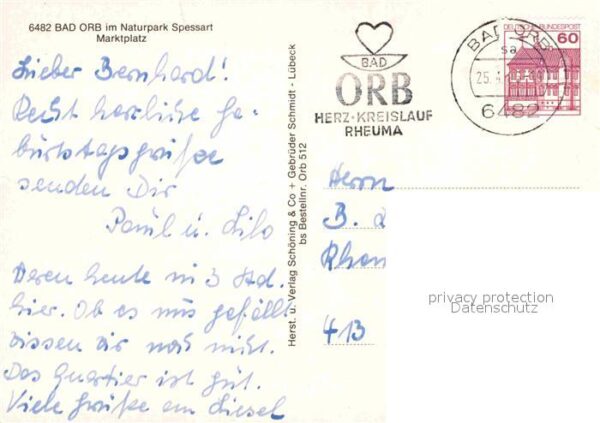 6482 BAD ORB im Naturpark Spessart
Marktplatz
Lieber Bernhard!
Recht herzliche Ge-
burtstagsgrüße
senden Dir
Paul u. Lilo
Waren heute in 3 Std.
hier. Ob es uns gefällt
wissen wir noch nicht.
Das Quartier ist gut.
Viele Grüße an Liesel
Herst. u. Verlag Schöning & Co + Gebrüder Schmidt · Lübeck
bs Bestellnr. Orb 512
BAD
ORB
HERZ·KREISLAUF
RHEUMA
BAD ORB
sa
25.
6482
DEUTSCHE BUNDESPOST
60
Herrn
B.
413
privacy protection
Datenschutz